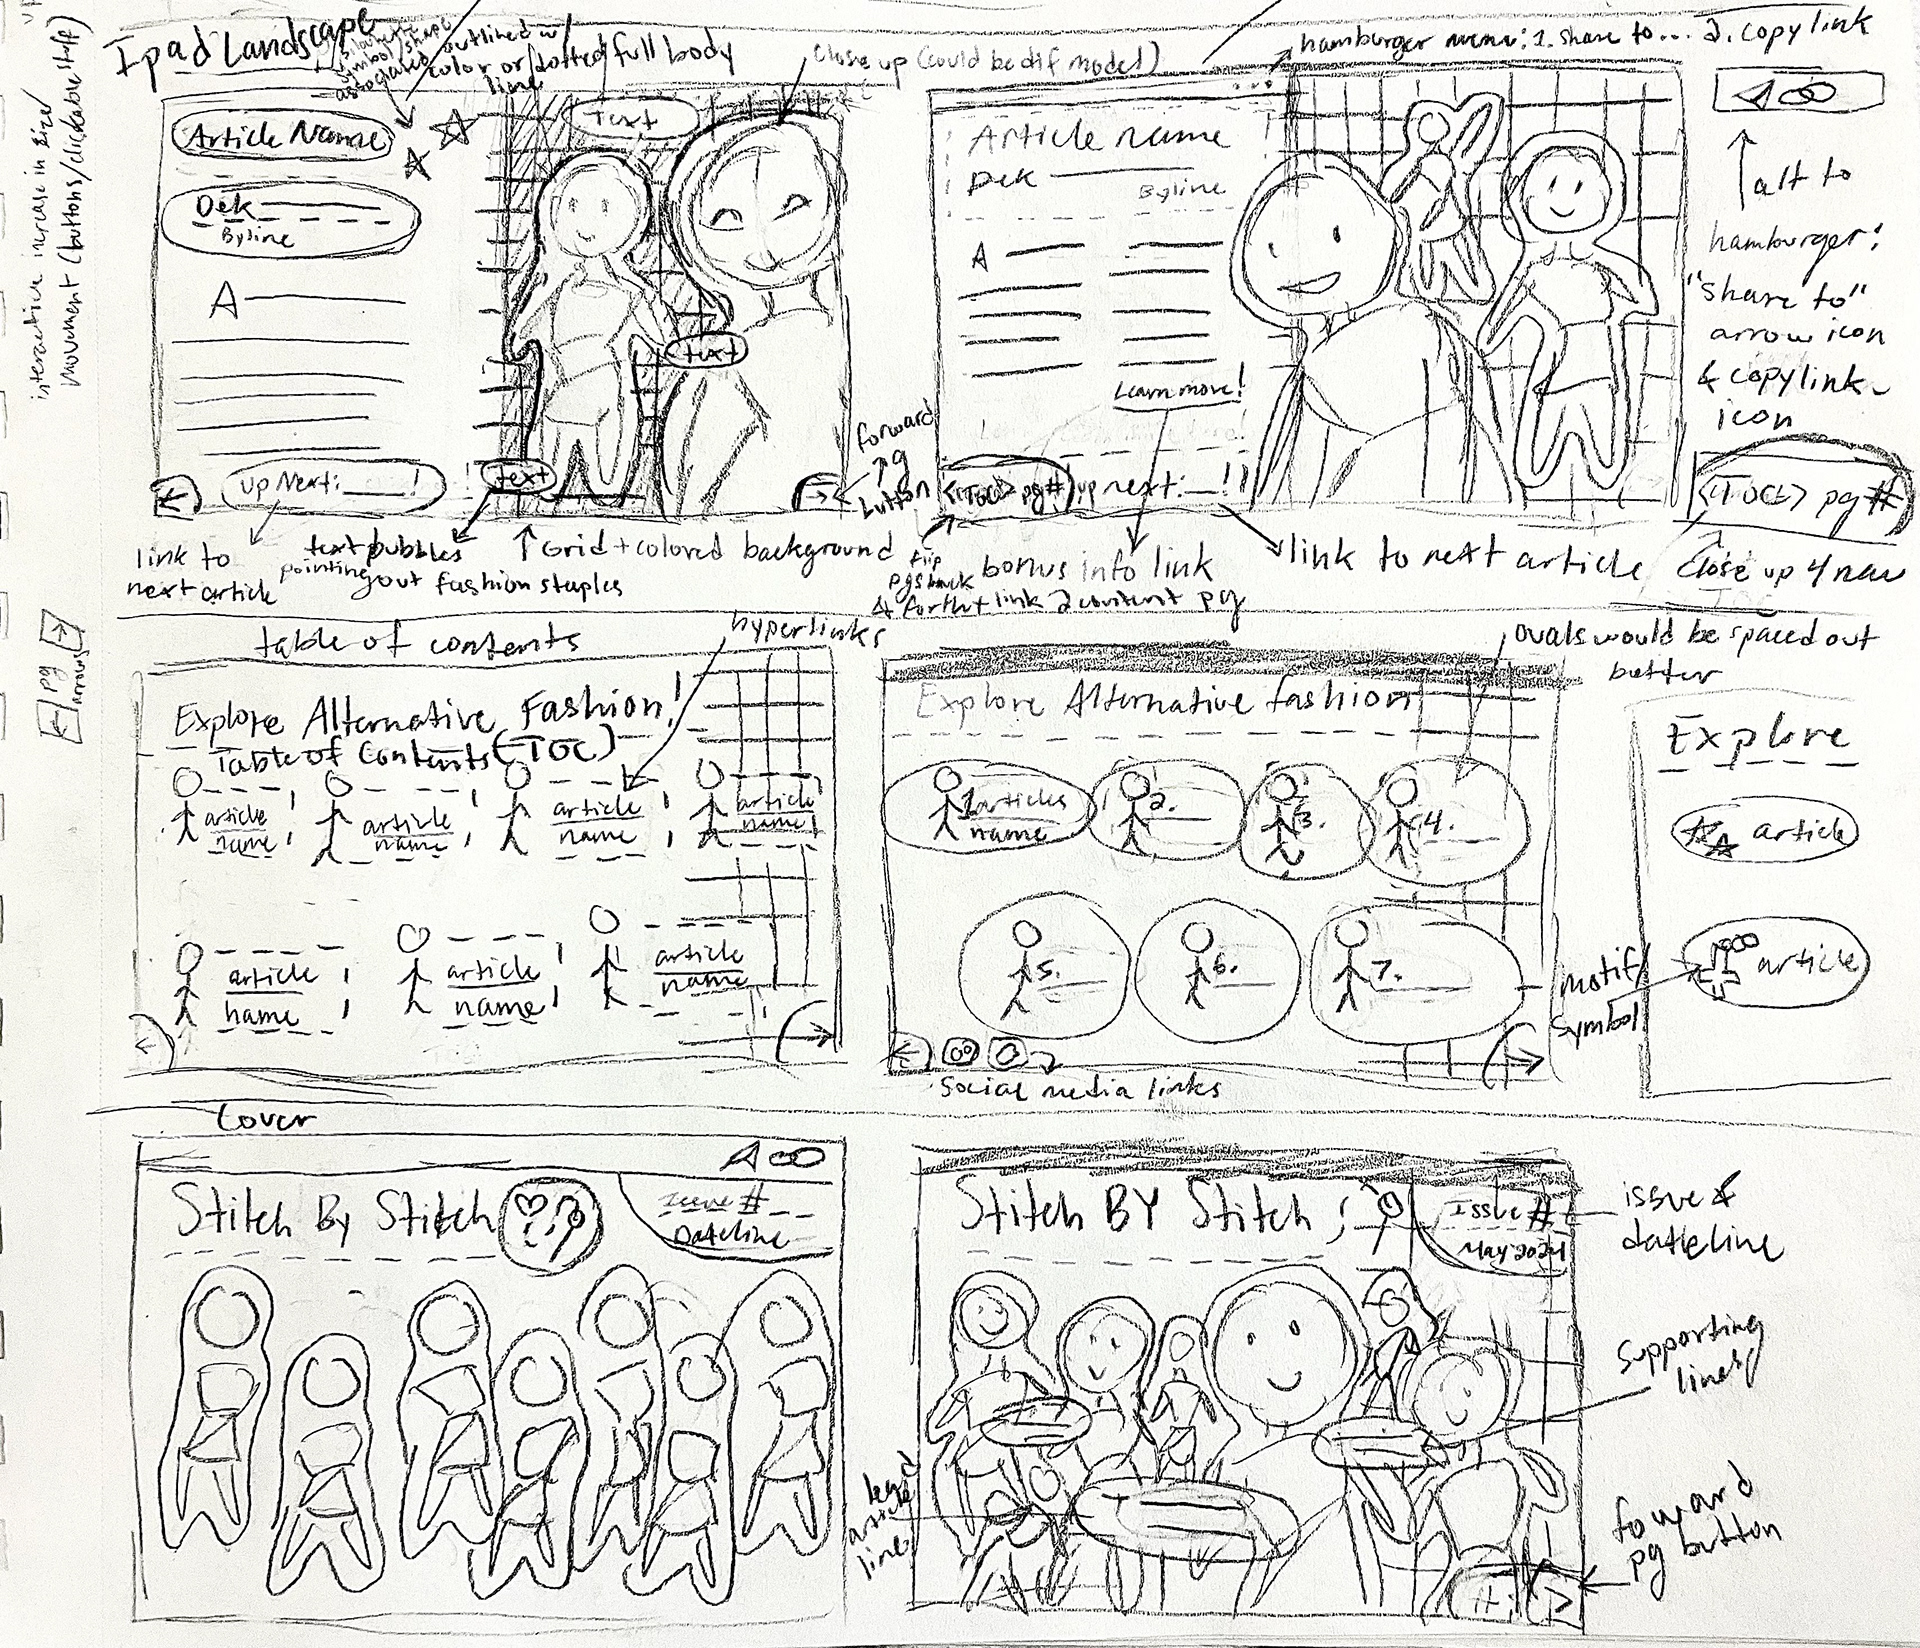 Ipad Landscape
symbol/shape
outlined w/
color or dotted full body
line
close up (could be dif model)
hamburger menu: 1. share to... 2. copy link
interactive increase in size/
movement (buttons/clickable stuff)
Article Name
Dek
Byline
A
Text
text
text
up Next: !
link to
next article
text bubbles
pointing out fashion staples
Grid + colored background
forward
pg
button
Article name
Dek
Byline
A
Learn more!
<TOC> pg#
up next: !
flip
pgs back
& forth + link 2 content pg
bonus info link
link to next article
alt to
hamburger:
"share to"
arrow icon
& copy link
icon
<TOC> pg #
Close up 4 nav
pg
arrows
table of contents
hyperlinks
Explore Alternative Fashion!
Table of Contents (TOC)
article
name
article
name
article
name
article
name
article
name
article
name
article
name
ovals would be spaced out
better
Explore Alternative fashion
1 articles
name
2.
3.
4.
5.
6.
7.
Social media links
Explore
article
article
motif/
symbol
Cover
Stitch By Stitch
Issue #
Dateline
Stitch BY Stitch
Issue #
May 2024
issue &
dateline
supporting
lines
lead
article
line
foward
pg button